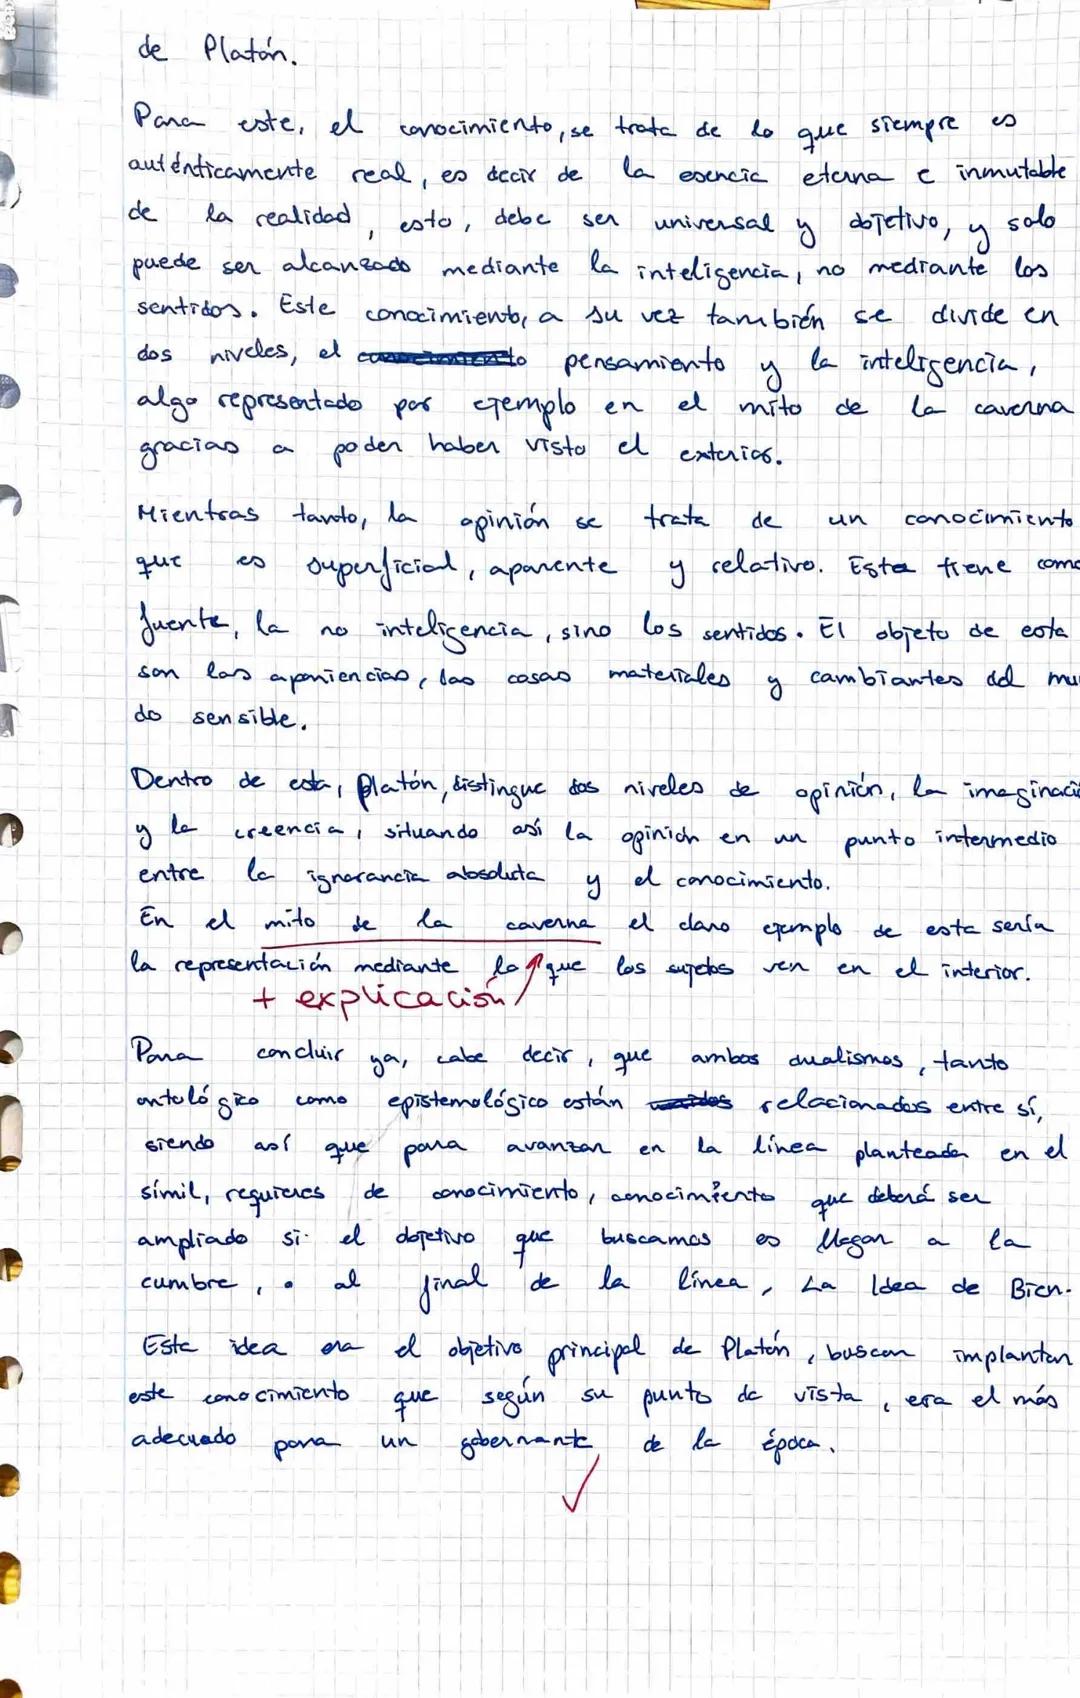 de Platón.
Para este, el conocimiento, se trata de lo que siempre es
auténticamente real, es decir de la esencia eterna e inmutable
de la realidad, esto, debe ser universal y objetivo, y solo
puede ser alcanzado mediante la inteligencia, no mediante los
sentidos. Este conocimiento, a su vez también se divide en
dos niveles, el conocimiento pensamiento y la inteligencia,
algo representado por ejemplo en el mito de la caverna
gracias a poder haber visto el exterior.
Mientras tanto, la opinión se trata de un conocimiento
que es superficial, aparente y relativo. Esta tiene como
fuente, la no inteligencia, sino los sentidos. El objeto de esta
son las apariencias, las cosas materiales y cambiantes del mun
do sensible.
Dentro de esta, Platón, distingue dos niveles de opinión, la imaginaci
y la creencia, situando así la opinión en un punto intermedio
entre la ignorancia absoluta y el conocimiento.
En el mito de la caverna el claro ejemplo de esta sería
la representación mediante lo que los sujetos ven en el interior.
+ explicación
Para concluir ya, cabe decir, que ambos dualismos, tanto
ontológico como epistemológico están relacionados entre sí,
siendo así que para avanzar en la línea planteada en el
símil, requieres de conocimiento, conocimiento que deberá ser
ampliado si el objetivo que buscamos es llegar a la
cumbre, o al final de la línea, La Idea de Bien.
Esta idea era el objetivo principal de Platón, buscar implantar
este conocimiento que según su punto de vista, era el más
adecuado para un gobernante de la época.